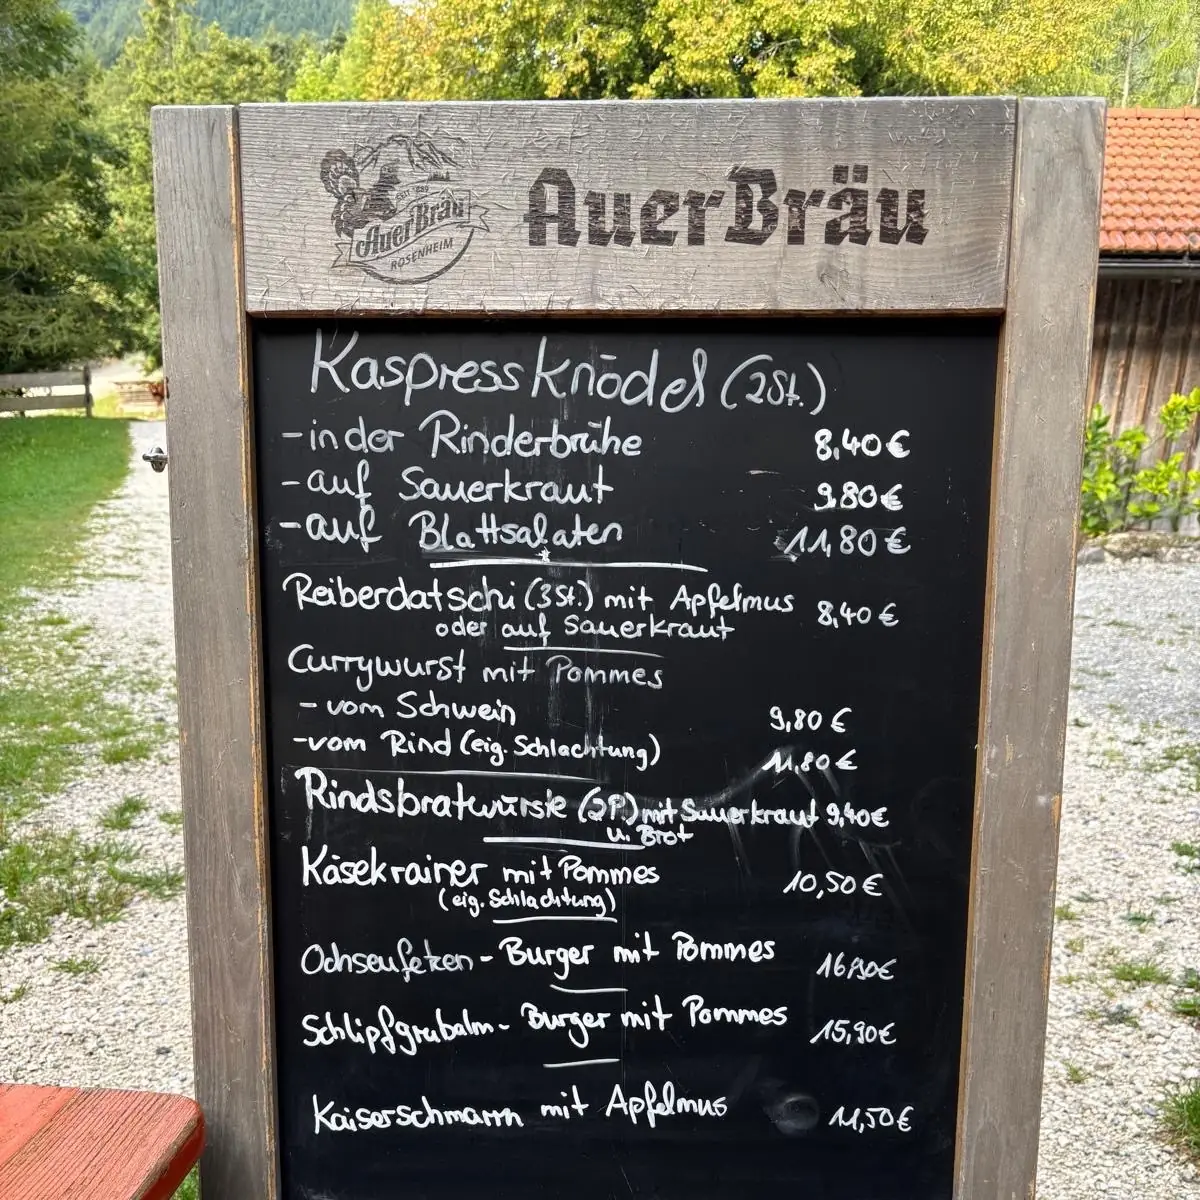 SEIT 1889
AuerBräu
ROSENHEIM
AuerBräu
Kaspressknödel (2St.)
- in der Rinderbrühe 8,40 €
- auf Sauerkraut 9,80 €
- auf Blattsalaten 11,80 €
Reiberdatschi (3St.) mit Apfelmus 8,40 €
oder auf Sauerkraut
Currywurst mit Pommes
- vom Schwein 9,80 €
- vom Rind (eig. Schlachtung) 11,80 €
Rindsbratwürste (2P.) mit Sauerkraut 9,40 €
u. Brot
Käsekrainer mit Pommes 10,50 €
(eig. Schlachtung)
Ochsenfetzen - Burger mit Pommes 16,90 €
Schlipfgrubalm - Burger mit Pommes 15,90 €
Kaiserschmarrn mit Apfelmus 11,50 €